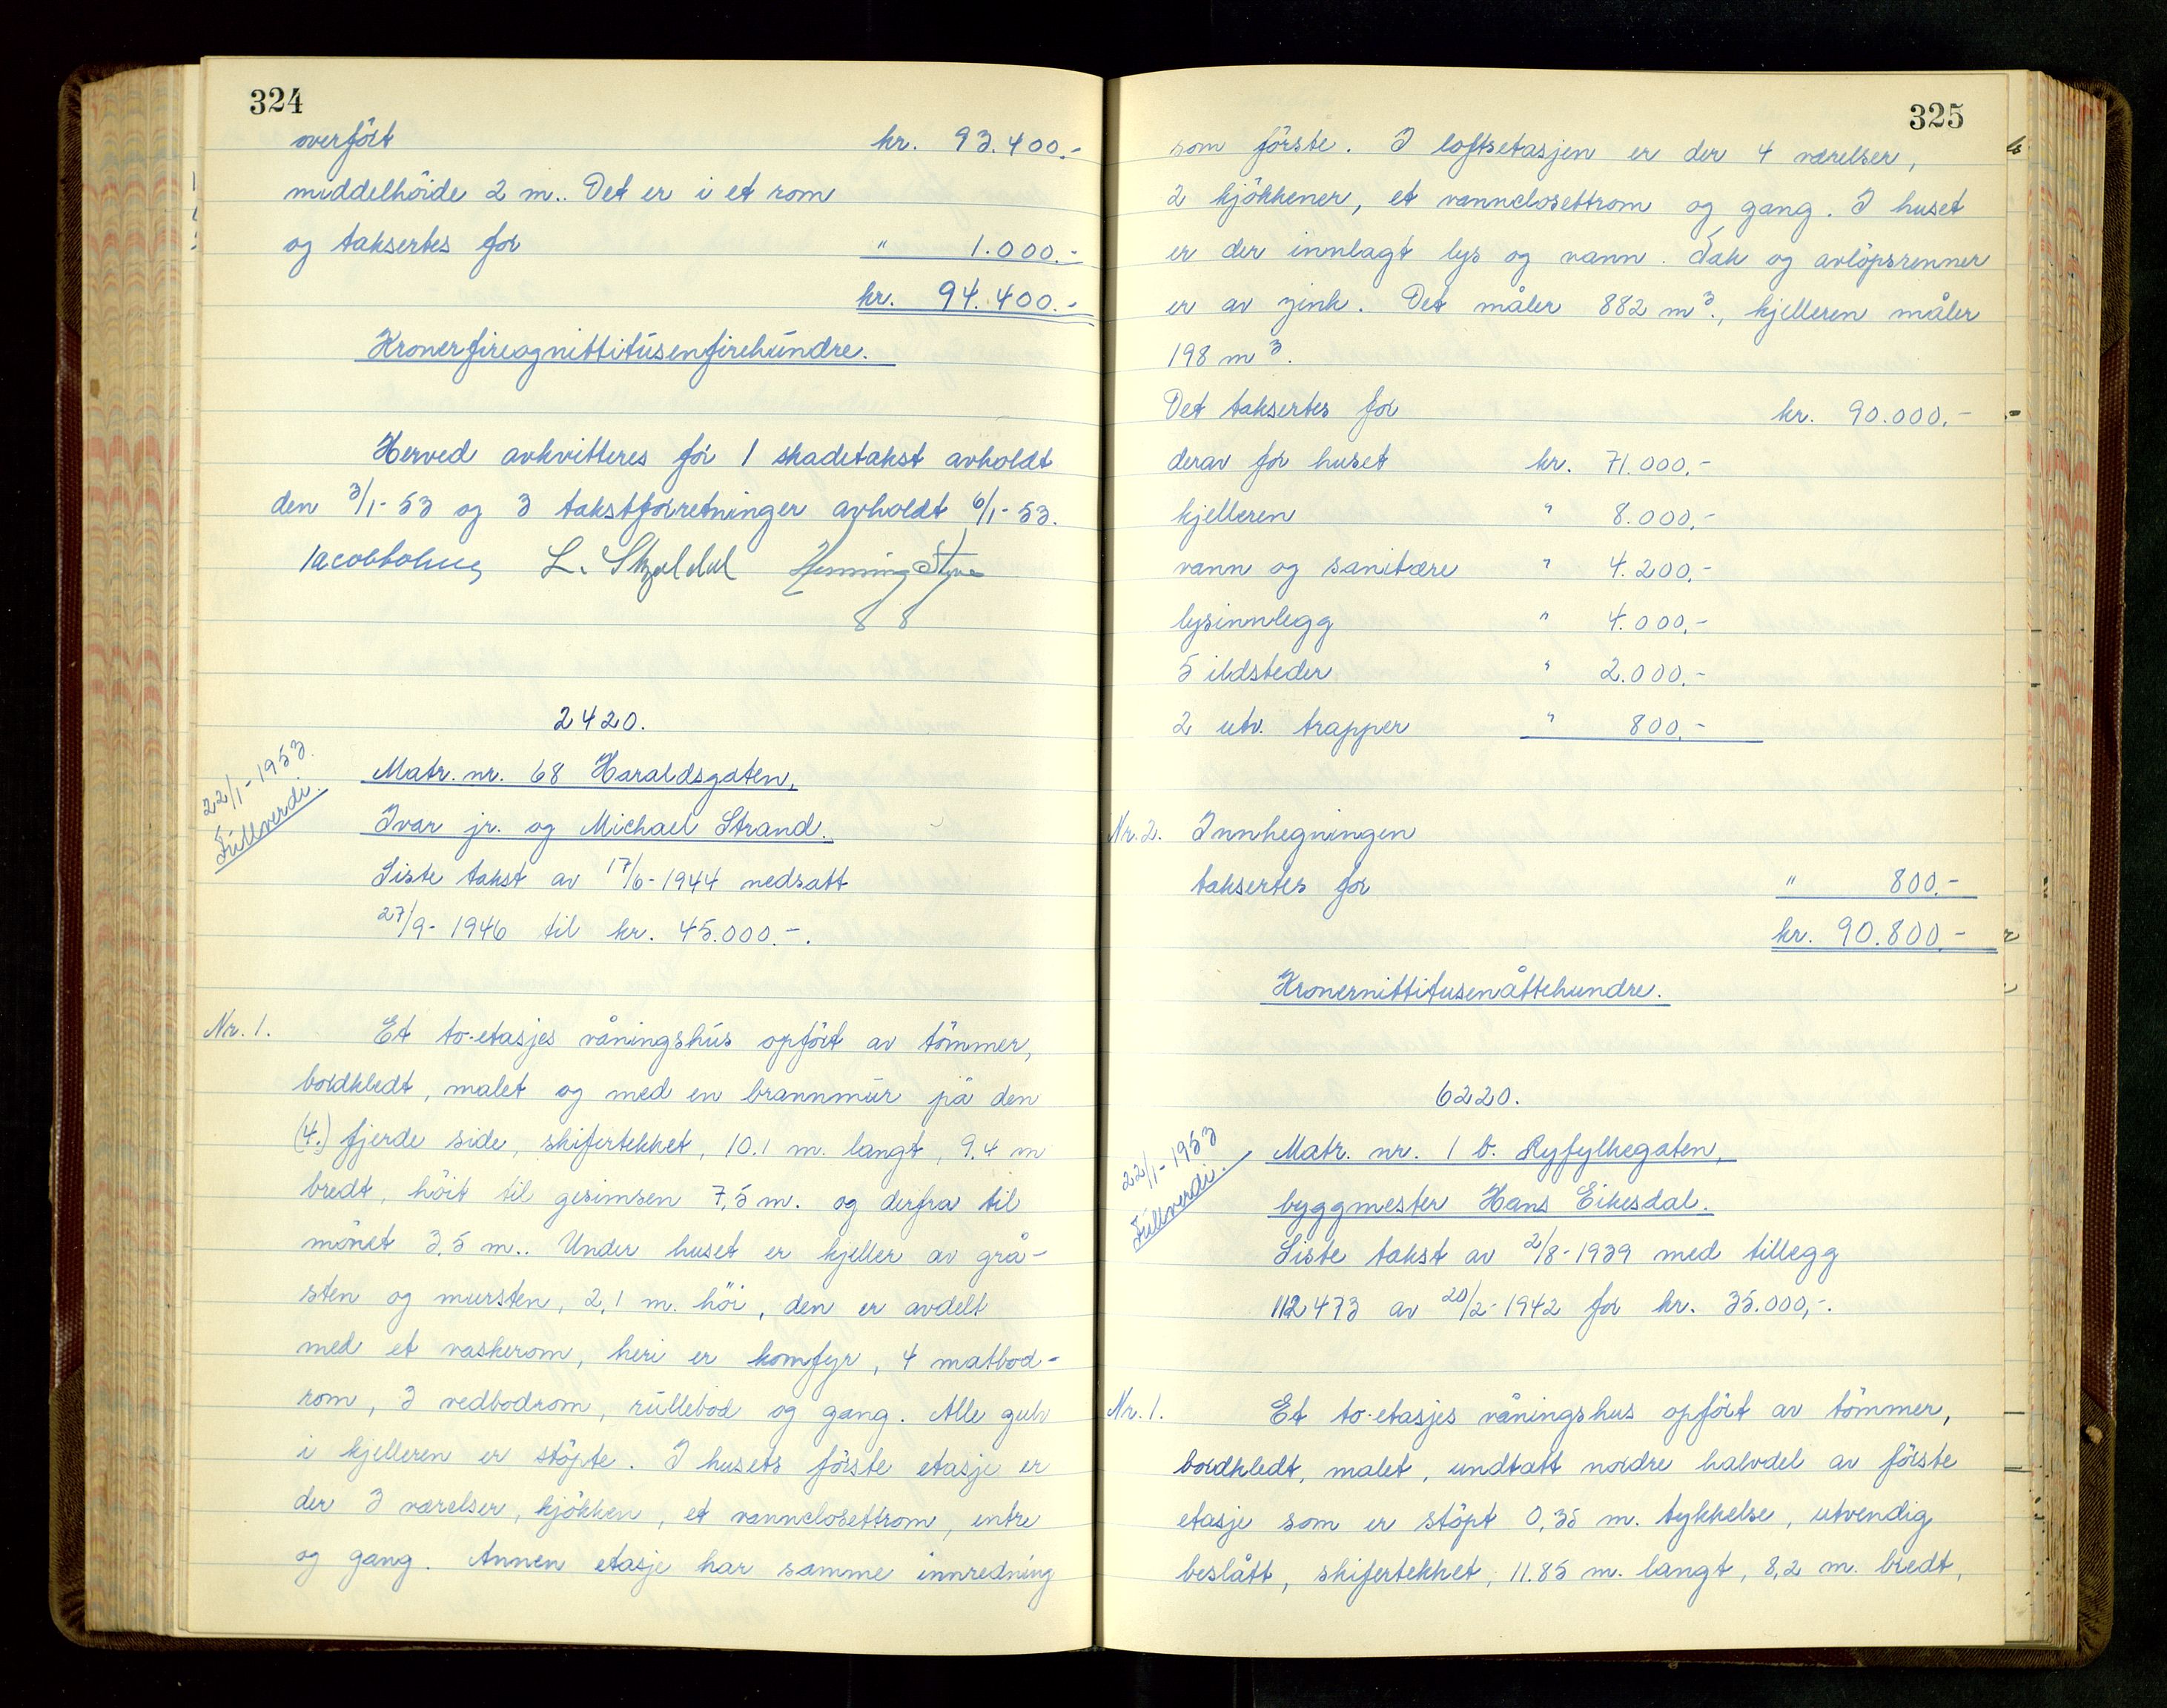 324
overført kr. 93.400.-
middelhöide 2 m.. Det er i et rom
og taksertes for " 1.000.-
kr. 94.400.-
Kronerfireognittitusenfirehundre.
Herved avkvitteres for 1 skadetakst avholdt
den 3/1-53 og 3 takstforretninger avholdt 6/1-53.
L. Henning
2420.
22/1-1953.
Fullverdi.
Matr. nr. 68 Haraldsgaten,
Ivar jr. og Michael Strand.
Siste takst av 17/6-1944 nedsatt
27/9-1946 til kr. 45.000.-.
Nr. 1. Et to-etasjes våningshus opfört av tömmer,
bordkledt, malet og med en brannmur på den
(4.) fjerde side, skifertekket, 10.1 m. langt, 9.4 m
bredt, höit til gesimsen 7,5 m. og derfra til
mönet 3,5 m.. Under huset er kjeller av grå-
sten og mursten, 2,1 m. höi, den er avdelt
med et vaskerom, heri er komfyr, 4 matbod-
rom, 3 vedbodrom, rullebod og gang. Alle gulv
i kjelleren er stöpte. I husets förste etasje er
der 3 værelser, kjökken, et vannclosettrom, entre
og gang. Annen etasje har samme innredning
325
som förste. I loftsetasjen er der 4 værelser,
2 kjökkener, et vannclosettrom og gang. I huset
er der innlagt lys og vann. Tak og avlöpsrenner
er av zink. Det måler 882 m³., kjelleren måler
198 m³.
Det taksertes for kr. 90.000.-
derav for huset kr. 71.000.-
kjelleren " 8.000.-
vann og sanitære " 4.200.-
lysinnlegg " 4.000.-
5 ildsteder " 2.000.-
2 utv. trapper " 800.-
Nr. 2. Innhegningen
taksertes for " 800.-
kr. 90.800.-
Kronernittitusenåttehundre.
6220.
22/1-1953
Fullverdi.
Matr. nr. 1 b. Ryfylkegaten,
byggmester Hans Eikesdal.
Siste takst av 2/8-1939 med tillegg
112473 av 20/2-1942 for kr. 35.000,-.
Nr. 1. Et to-etasjes våningshus opfört av tömmer,
bordkledt, malet, undtatt nordre halvdel av förste
etasje som er stöpt 0,35 m. tykkelse, utvendig
beslått, skifertekket, 11.85 m. langt, 8,2 m. bredt,